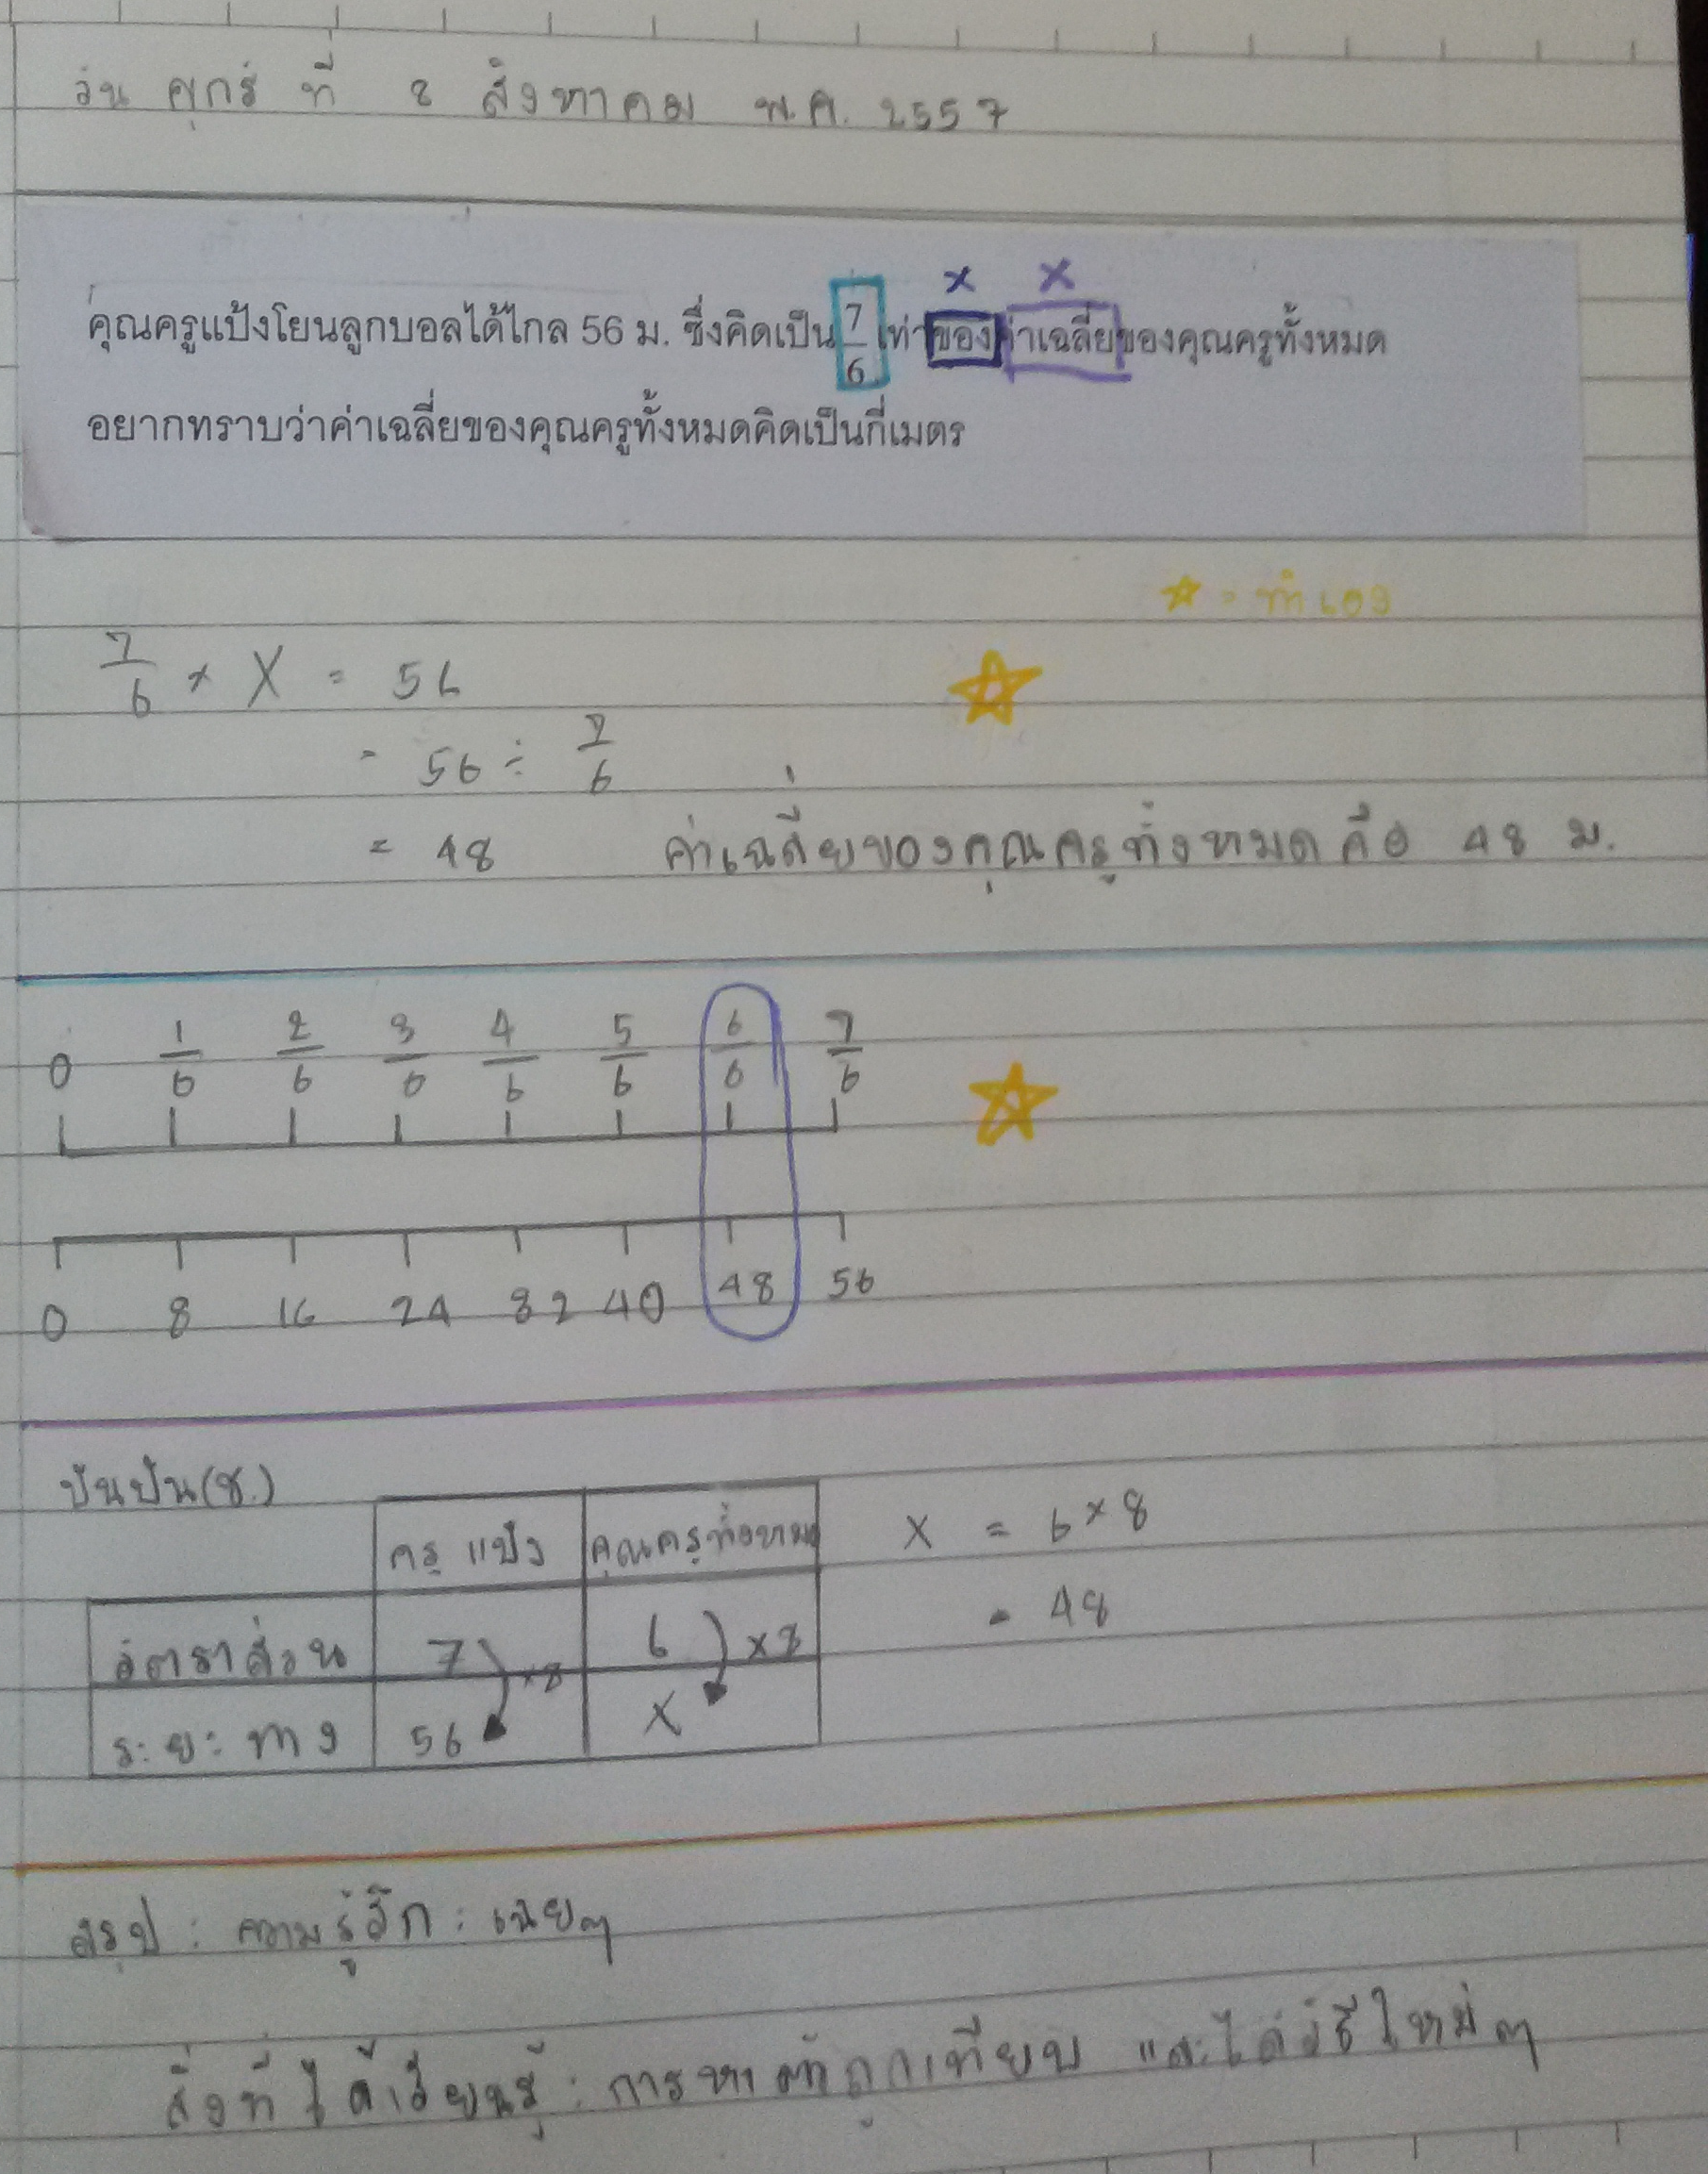 วัน ศุกร์ ที่ 8 สิงหาคม พ.ศ. 2557
× ×
คุณครูแป้งโยนลูกบอลได้ไกล 56 ม. ซึ่งคิดเป็น 7/6 เท่าของค่าเฉลี่ยของคุณครูทั้งหมด
อยากทราบว่าค่าเฉลี่ยของคุณครูทั้งหมดคิดเป็นกี่เมตร
☆ = ทำเอง
7/6 × X = 56
= 56 ÷ 7/6
= 48 ค่าเฉลี่ยของคุณครูทั้งหมดคือ 48 ม.
0 1/6 2/6 3/6 4/6 5/6 6/6 7/6
0 8 16 24 32 40 48 56
ปันปัน(ช.)
ครูแป้ง คุณครูทั้งหมด X = 6 × 8
อัตราส่วน 7 ×8 6 ×8 = 48
ระยะทาง 56 X
สรุป : ความรู้สึก : เฉยๆ
สิ่งที่ได้เรียนรู้ : การหาตัวถูกเทียบ และได้วิธีใหม่ๆ